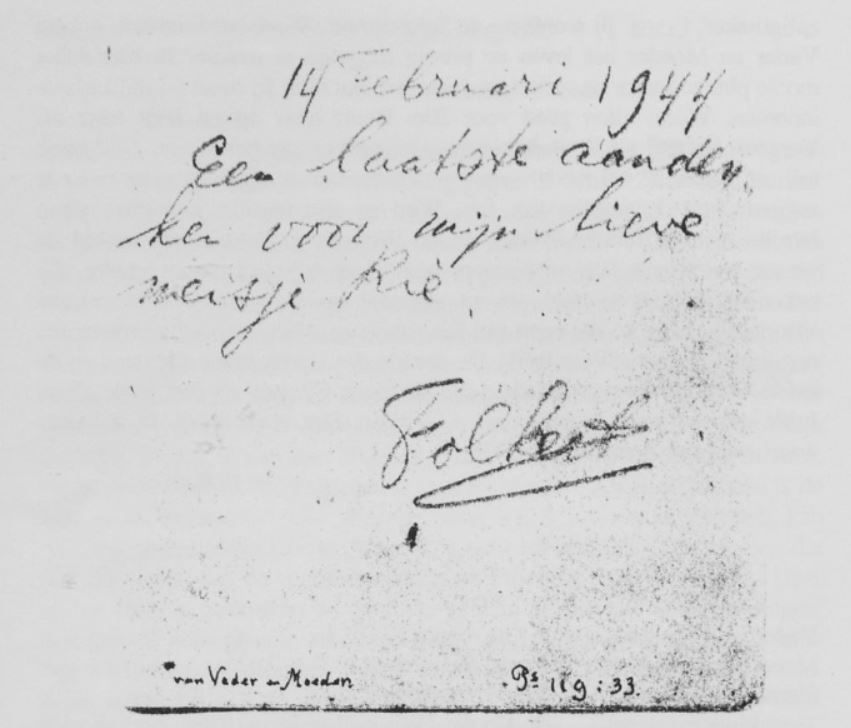 14 Februari 1944
Een laatste aanden,
ken voor mijn lieve
meisje Rie.
Folkert
van Vader en Moeder Ps 119:33.